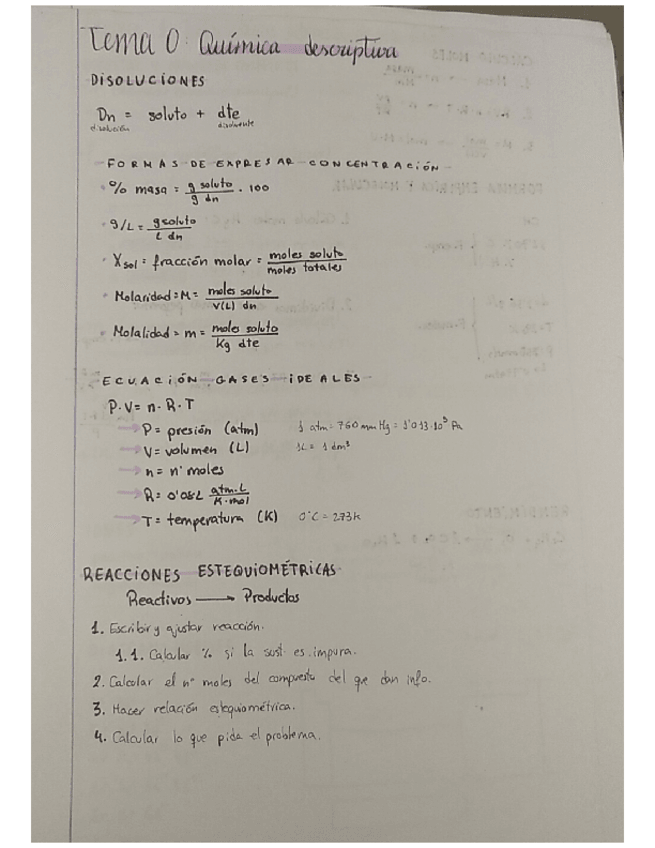 Tema 0: Química descriptiva
DISOLUCIONES
Dn = soluto + dte
disolución disolvente
FORMAS DE EXPRESAR CONCENTRACIÓN
% masa = g soluto / g dn · 100
g/L = g soluto / L dn
Xsol = fracción molar = moles soluto / moles totales
Molaridad = M = moles soluto / V(L) dn
Molalidad = m = moles soluto / Kg dte
ECUACIÓN GASES IDEALES
P·V = n·R·T
→ P = presión (atm) 1 atm = 760 mm Hg = 1'013·10⁵ Pa
→ V = volumen (L) 1L = 1 dm³
→ n = nº moles
→ R = 0'082 atm·L / K·mol
→ T = temperatura (K) 0°C = 273K
REACCIONES ESTEQUIOMÉTRICAS
Reactivos → Productos
1. Escribir y ajustar reacción.
1.1. Calcular % si la sust. es impura.
2. Calcular el nº moles del compuesto del que dan info.
3. Hacer relación estequiométrica.
4. Calcular lo que pida el problema.